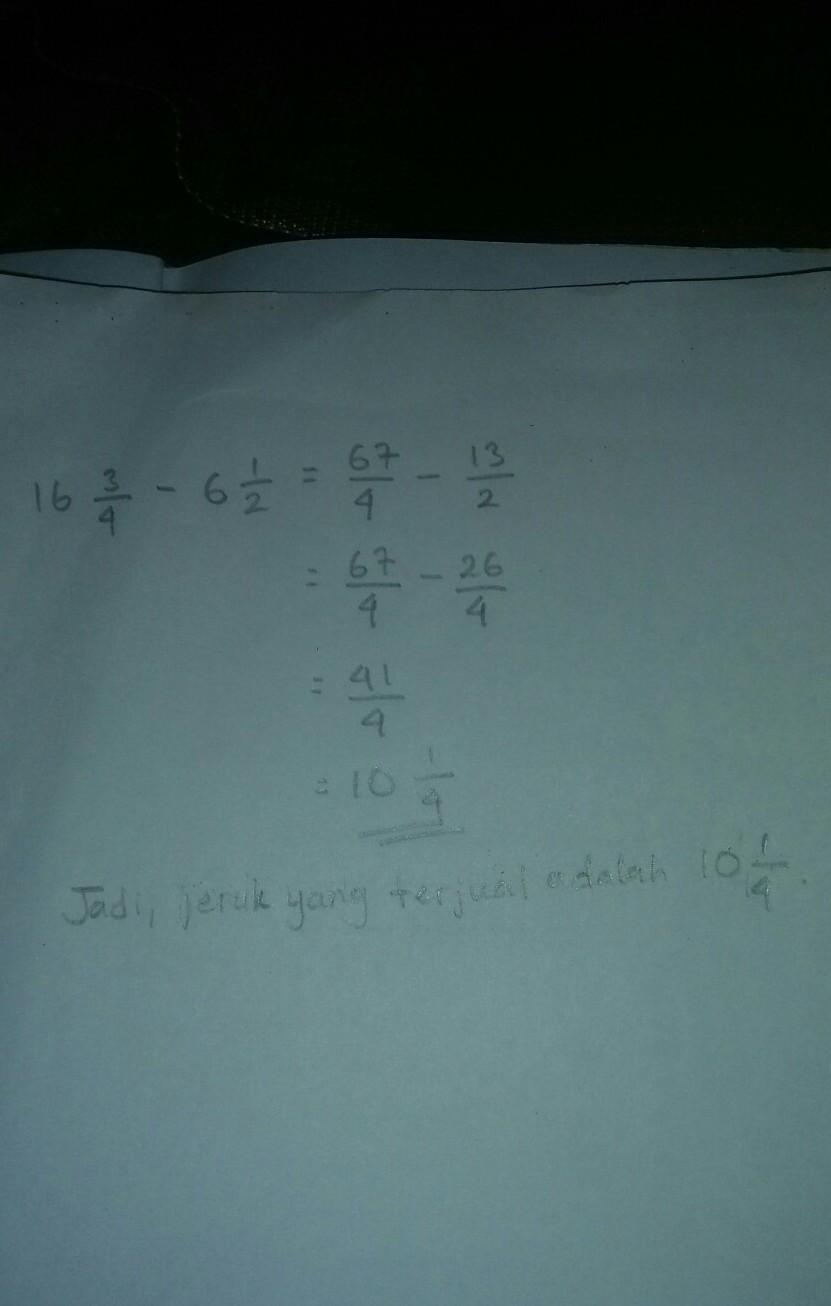 16 3/4 - 6 1/2 = 67/4 - 13/2
= 67/4 - 26/4
= 41/4
= 10 1/4
Jadi, jeruk yang terjual adalah 10 1/4.